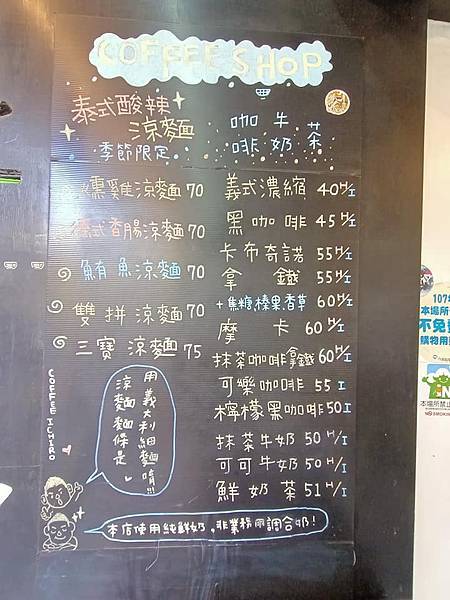 COFFEE SHOP
泰式酸辣
涼麵
季節限定
燻雞涼麵 70
泰式香腸涼麵 70
鮪魚涼麵 70
雙拼涼麵 70
三寶涼麵 75
咖牛茶
啡奶
義式濃縮 40 H/I
黑咖啡 45 H/I
卡布奇諾 55 H/I
拿鐵 55 H/I
+焦糖.榛果.香草 60 H/I
摩卡 60 H/I
抹茶咖啡拿鐵 60 H/I
可樂咖啡 55 I
檸檬黑咖啡 50 I
抹茶牛奶 50 H/I
可可牛奶 50 H/I
鮮奶茶 51 H/I
COFFEE ICHIRO
涼麵麵條是
用義大利細麵唷!!!
本店使用純鮮奶，非業務用調合奶!
107年
本場所
不免費
購物用
本場所禁止
NO SMOKIN